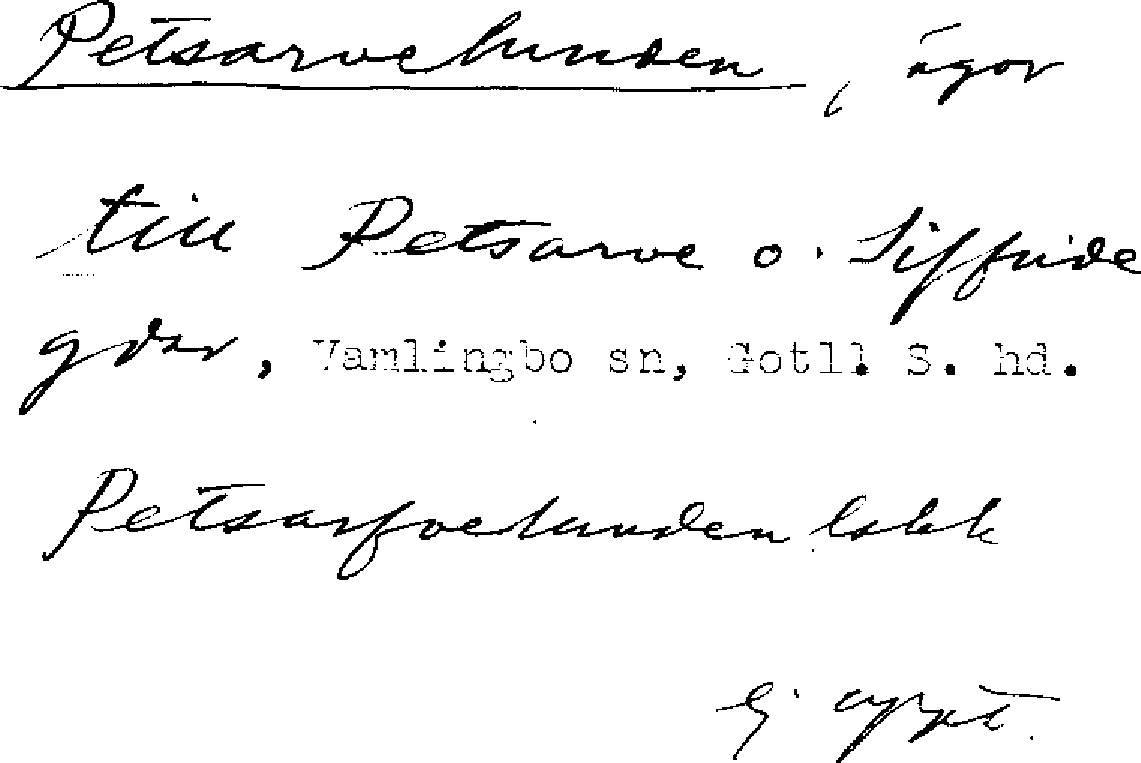 Petsarvelunden, ägor
till Petsarve o. Siffride
gdar, Vamlingbo sn, Gotll. S. hd.
Petsarfvelunden lskk
Ej uppt.